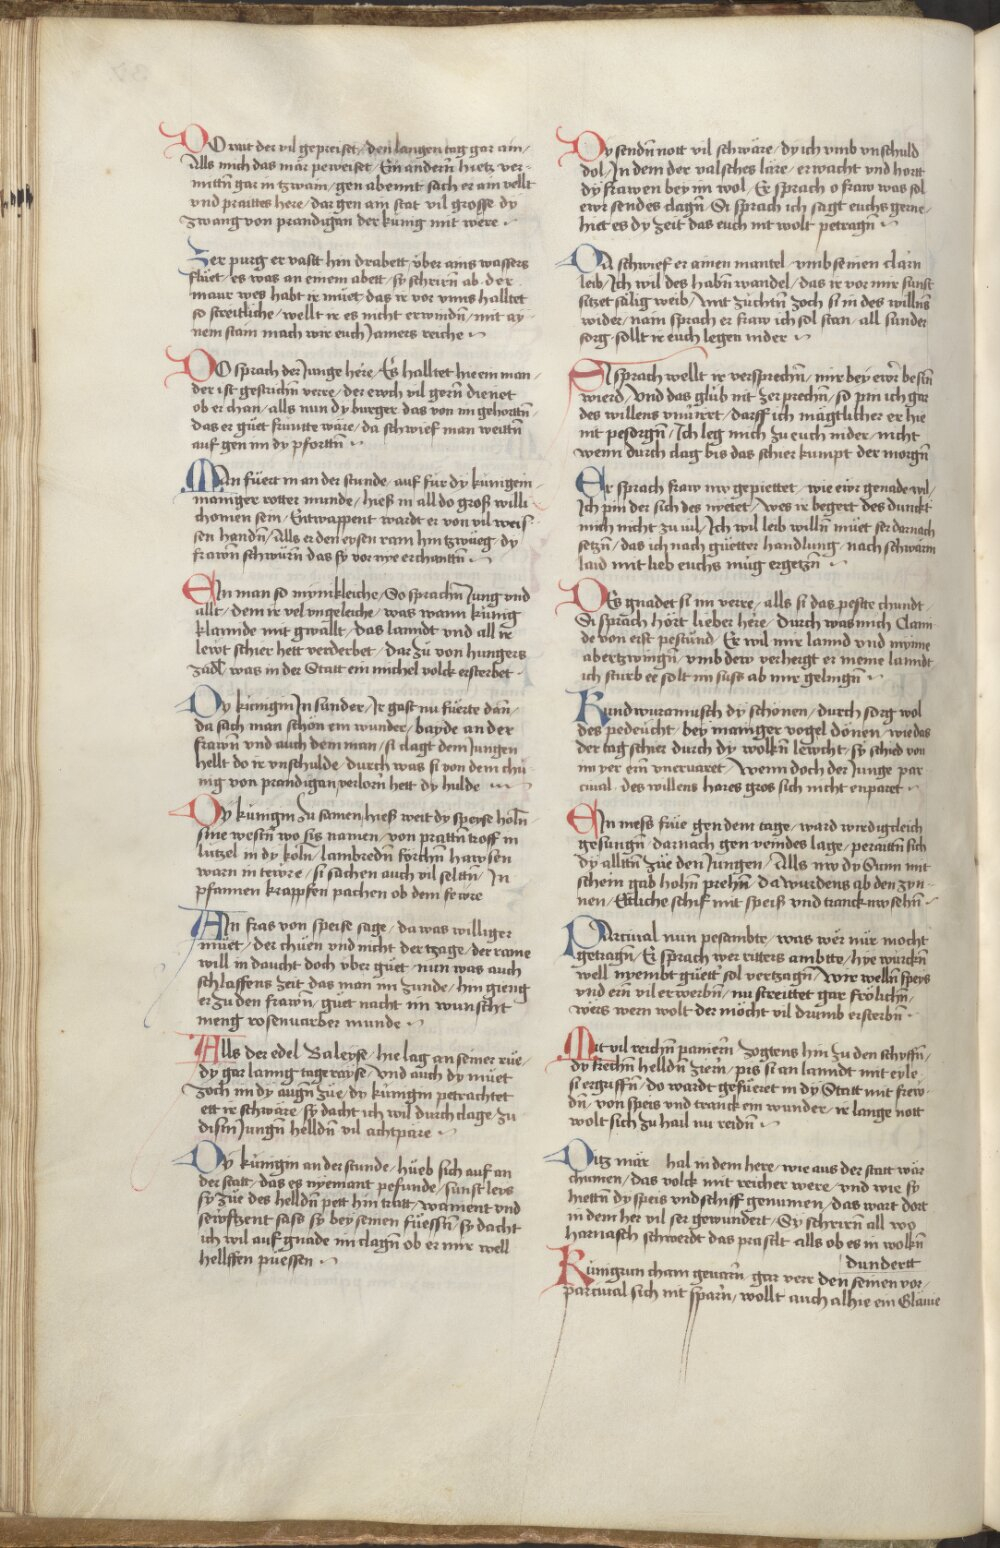 DO rait der vil gepreiset / den langen tag gar ain /
Alls mich das mär peweiset / Ein andern hietz ver-
mittn gar in tzwain / gen abennt sach er am vellt
vnd praittes here / dar gen am stat vil grosse dy
zwang von prandigan der kunig mit were
Zer purg er vastt hin drabett / vber ains wassers
fluet / es was an einem abett / sy schrirn ab der
maur wes habt ir müet / das ir vor vnns halltet
so streitliche / wellt ir es nicht erwindn / mit ay-
nem stain mach wir euch Jamers reiche
DO sprach der Junge here / Es halltet hie ein man /
der ist gestrichn verre / der ewch vil gern dienet
ob er chan / alls nun dy burger das von im gehortn /
das er guet frauntt ware / da schwief man weittn
auf gen im dy pforttn
Man füert in an der stunde / auf für dy kunigein /
maniger rotter munde / hieß in all do groß willi
chomen sein / Entwappent wardt er von vil weis-
sen handn / Alls er den eysen ram hin tzwueg / dy
frawn schwurn das sy vor nye erchanntn
Ein man so mynikleiche / So sprachn Jung vnd
allt / dem ir vel vngeleiche / was wann kunig
klamide mit gwallt / das lanndt vnd all ir
lewt schier hett verderbet / dar zu von hungers
zadl was in der Statt ein michel volck ersterbet
Dy kunigin In sunder / Ir gast nu fuerte dan /
da sach man schon ein wunder / bayde an der
frawn vnd auch dem man / si clagt dem Jungen
hellt do ir vnschulde / durch was si von dem chu-
nig von prandigan verlorn hett dy hulde
Dy kunigin zu samen / hieß weit dy speise holn /
sine westn wo sis namen / von prattn troff in
lutzel in dy koln / lambredn förchn hawsen
warn in tewre / si sachen auch vil seltn / In
pfannen krappfen pachen ob dem fewre
Ain fras von speise sage / da was williger
müet / der chüen vnd nicht der tzage / der rame
will in daucht doch vber guet / nun was auch
schlaffens zeit das man im zunde / hin gieng
er zu den frawn / guet nacht im wunscht
meng rosenuarber munde
Alls der edel Valeyse / hie lag an seiner rüe /
dy gar lanng tage rayse / vnd auch dy müet
zoch im dy augn zue / dy kunigin petrachtet
ett ir schware / sy dacht ich wil durch clage / zu
disin Jungn helldn vil achtpäre
Dy kunigin an der stunde / hueb sich auf an
der statt / das es nyemant pefunde / sunst leys
sy zue des helldn pett hin tratt / wainent vnd
sewftzent sass sy bey seinen füessn / sy dacht
ich wil auf gnade im clagn ob er mir well
hellffen puessen
Dy sendn nott vil schwäre / dy ich vmb vnschuld
dol / In dem der valsches läre / erwacht vnd hortt
dy frawen bey im wol / Er sprach o fraw was sol
ewr sendes clagn / Si sprach ich sagt euchs gerne /
hiet es dy zeit das euch nit wolt petragn
Da schwief er ainen mantel / vmb seinen clarn
leib / Ich wil des habn wandel / das ir vor mir sunst
sitzet sälig weib / mit züchtn zoch si in des willns
wider / nain sprach er fraw ich sol stan / all sunder
sorg sollt ir euch legen nider
Si sprach wellt ir versprechn / mir bey ewr bestn
wierd / Vnd das glüb nit zer prechn / so pin ich gar
des willens vnuirrt / darff ich mägtlicher er hie
nit pesorgn / Ich leg mich zu euch nider / nicht
wenn durch clag bis das schier kumpt der morgn
Er sprach fraw nw gepiettet / wie ewr genade wil /
Ich pin der sich des nyetet / wes ir begert des dunckt
mich nicht zu vil / Ich wil leib willn müet ser darnach
setzn / das ich nach guetter handlung / nach schwarm
laid mit lieb euchs mug ergetzn
DEs gnadet si im verre / alls si das peste chundt /
Si sprach hort lieber here / durch was mich Clami
de von erst pestund / Er wil mir lannd vnd mynne
abertzwingn / vmb dew verhergt er meine lanndt
ich sturb ee solt im suss ab mir gelingn
Kundwuramusch dy schönen / durch sorg wol
des pedeucht / bey maniger vogel dönen / wie das
der tag schier durch dy wolkn lewcht / sy schied von
im yer ein vneruaret / Wenn doch der Junge par-
ciual / des willens hares gros sich nicht enparet
Ein mess früe gen dem tage / ward wirdigcleich
gesungn / darnach gen veindes lage / peraittn sich
dy alltn zue den Jungen / Alls nw dy Sunn mit
schein gab hohn prehn / da wurdens ab den zyn-
nen / Ettliche schif mit speiß vnd tranck nw sehn
Parcival nun pesambte / was wer nur mocht
getragn / Er sprach wer ritters ambtte / hye wurckn
well nyembt guett sol vertzagn / Wir welln speys
vnd ern vil erwerbn / nu streittet gar frölichn /
wers wern wolt der möcht vil drumb ersterbn
Mit vil reichn paniern zogtens hin zu den schyffn /
dy kechn helldn ziern / pis si an lanndt mit eyle
si ergriffn / do wardt gefueret in dy Statt mit frew-
dn / von speis vnd tranck ein wunder / ir lange nott
wolt sich zu hail nu reidn
Ditz mär hal in dem here / wie aus der statt wär
chumen / das volck mit reicher were / vnd wie sy
hiettn dy speis vnd schiff genumen / das wart dort
in dem her vil ser gewundert / Sy schrirn all wo
harnasch schwerdt das praselt alls ob es in wolkn
dundertt
Kunigrun cham geuarn / gar verr den seinen vor /
parcival sich nit sparn / wollt auch alhie ein Glaine